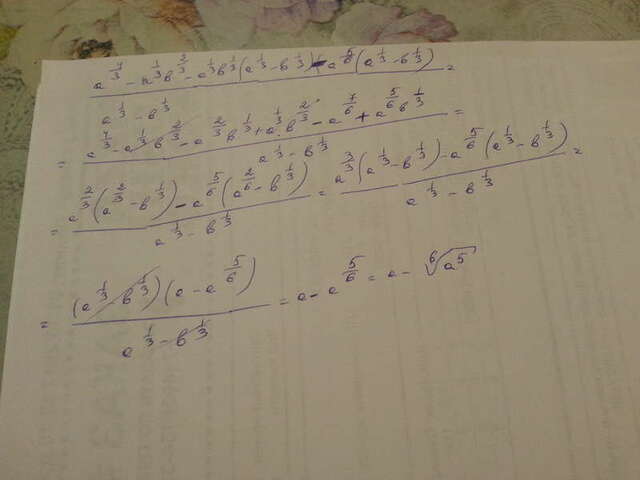 a^(7/3) - a^(1/3)b^(2/3) - a^(1/3)b^(1/3)(a^(1/3) - b^(1/3)) - a^(5/6)(a^(1/3) - b^(1/3)) =
a^(1/3) - b^(1/3)
= a^(7/3) - a^(1/3)b^(2/3) - a^(2/3)b^(1/3) + a^(1/3)b^(2/3) - a^(7/6) + a^(5/6)b^(1/3) =
a^(1/3) - b^(1/3)
= a^(2/3)(a^(2/3) - b^(1/3)) - a^(5/6)(a^(2/6) - b^(1/3)) = a^(3/3)(a^(1/3) - b^(1/3)) - a^(5/6)(a^(1/3) - b^(1/3)) =
a^(1/3) - b^(1/3) a^(1/3) - b^(1/3)
= (a^(1/3) - b^(1/3))(a - a^(5/6)) = a - a^(5/6) = a - ⁶√a⁵
a^(1/3) - b^(1/3)